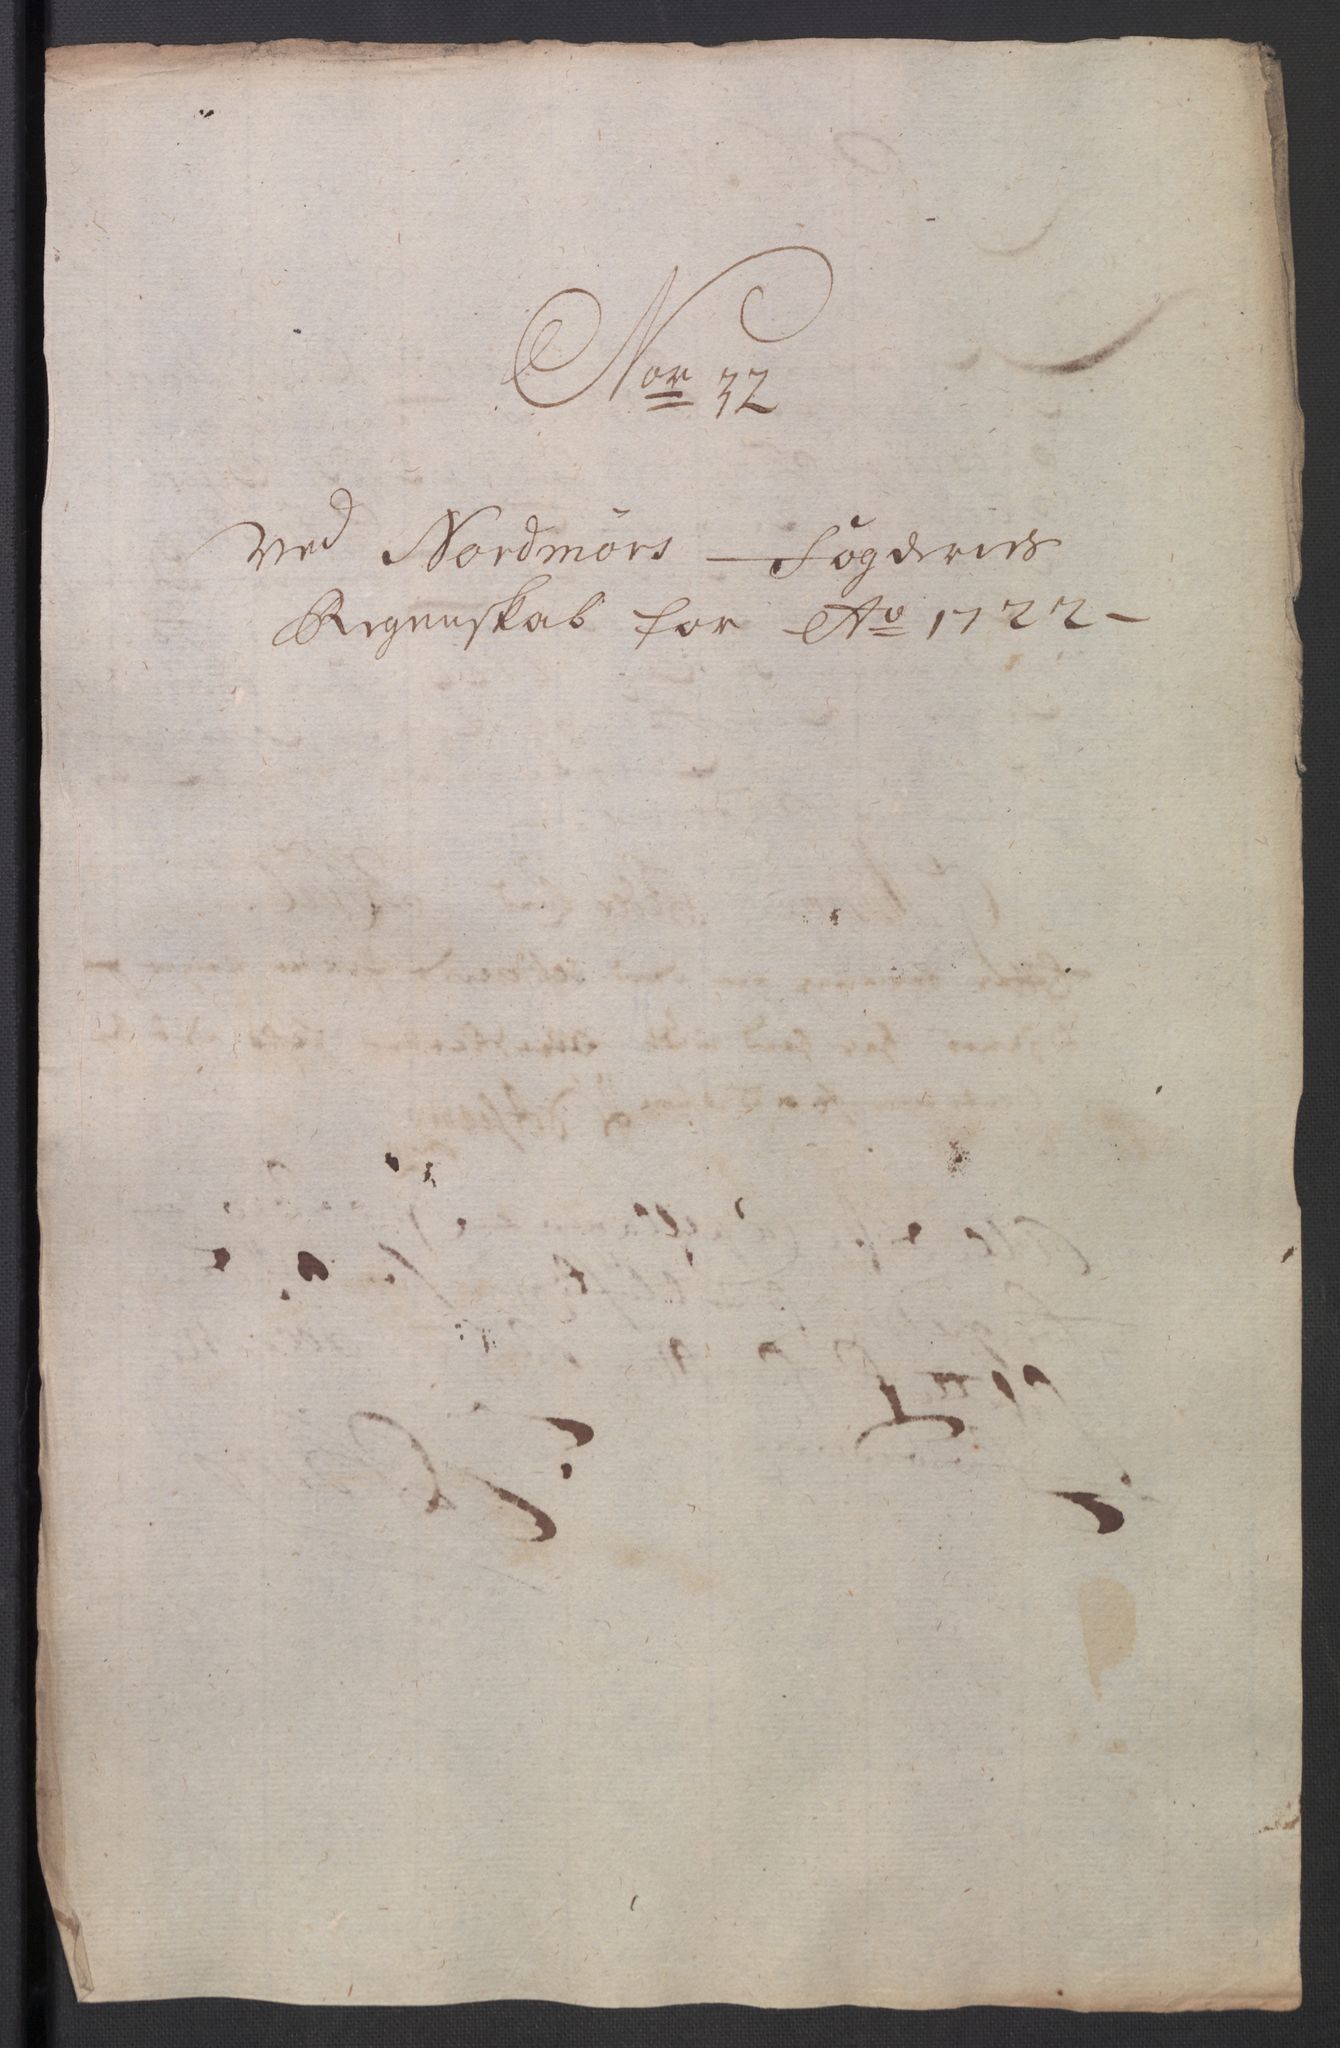 Nor 32
Ved Nordmörs Fogderies
Regenskab for Ao 1722 –